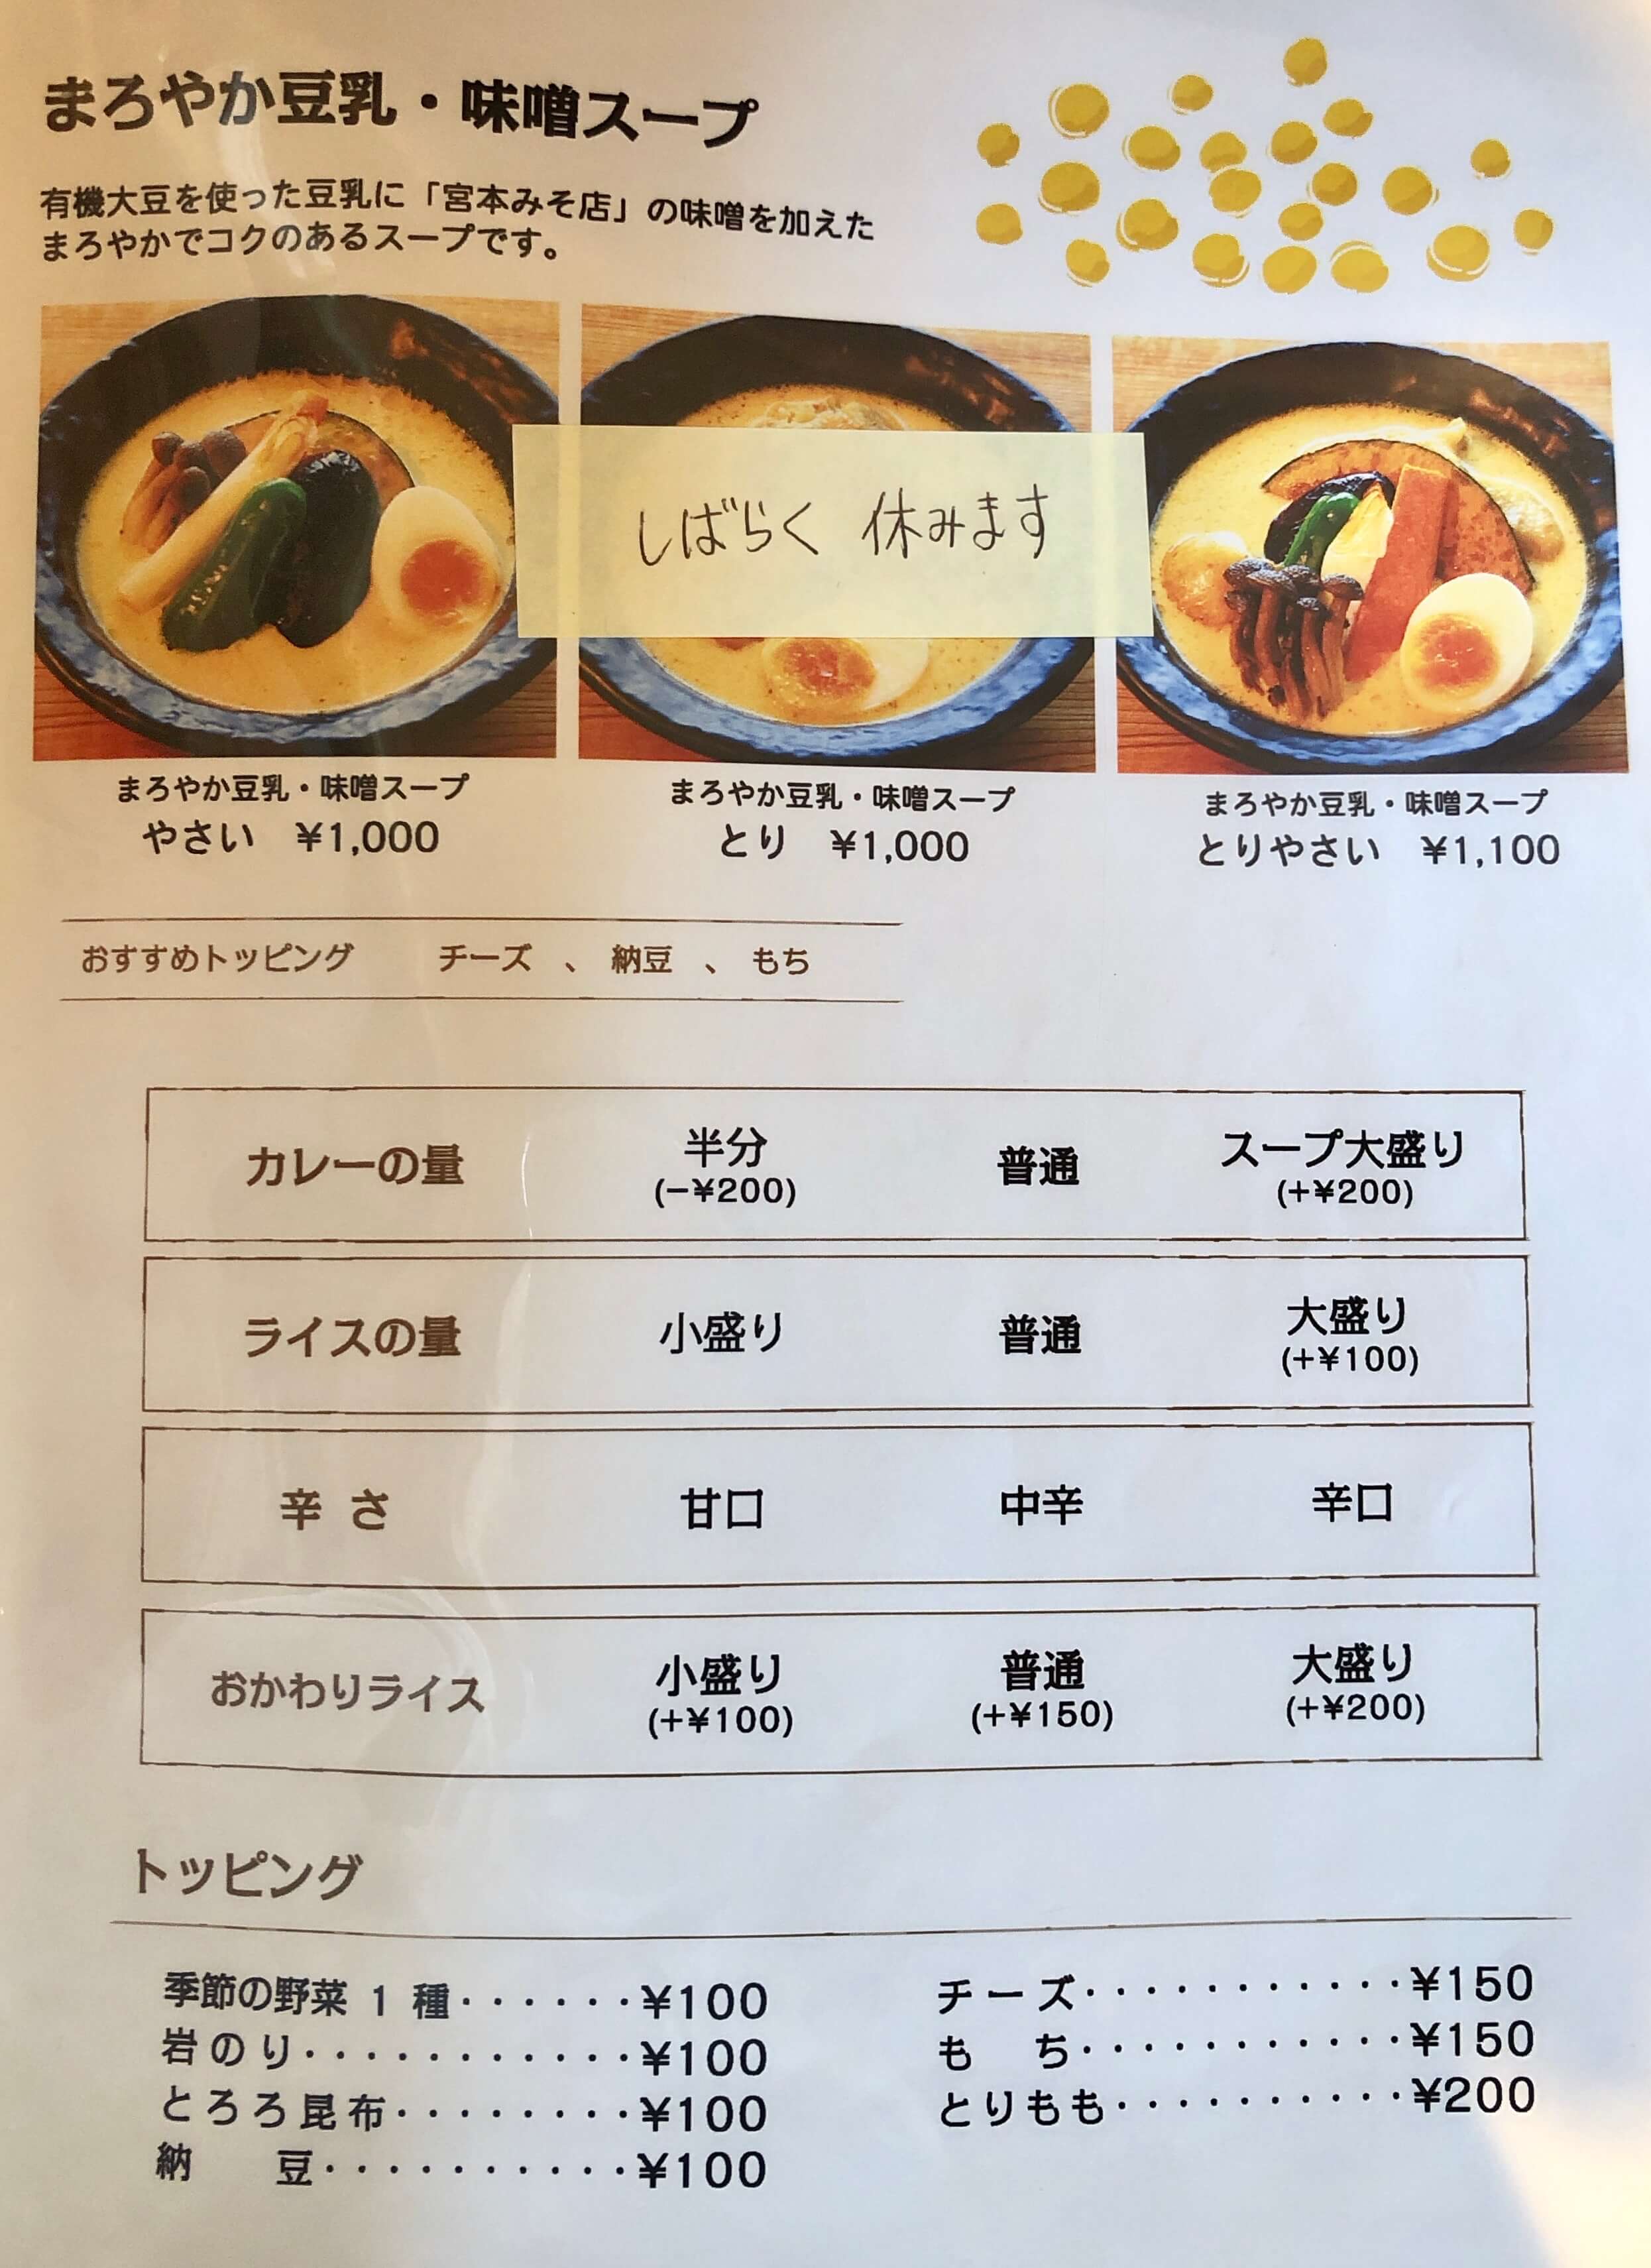 まろやか豆乳・味噌スープ
有機大豆を使った豆乳に「宮本みそ店」の味噌を加えた
まろやかでコクのあるスープです。
しばらく 休みます
まろやか豆乳・味噌スープ
やさい ¥1,000
まろやか豆乳・味噌スープ
とり ¥1,000
まろやか豆乳・味噌スープ
とりやさい ¥1,100
おすすめトッピング チーズ 、 納豆 、 もち
カレーの量 半分 普通 スープ大盛り
(−¥200) (+¥200)
ライスの量 小盛り 普通 大盛り
(+¥100)
辛さ 甘口 中辛 辛口
おかわりライス 小盛り 普通 大盛り
(+¥100) (+¥150) (+¥200)
トッピング
季節の野菜 1 種······¥100
岩のり···········¥100
とろろ昆布········¥100
納 豆··········¥100
チーズ···········¥150
も ち···········¥150
とりもも··········¥200